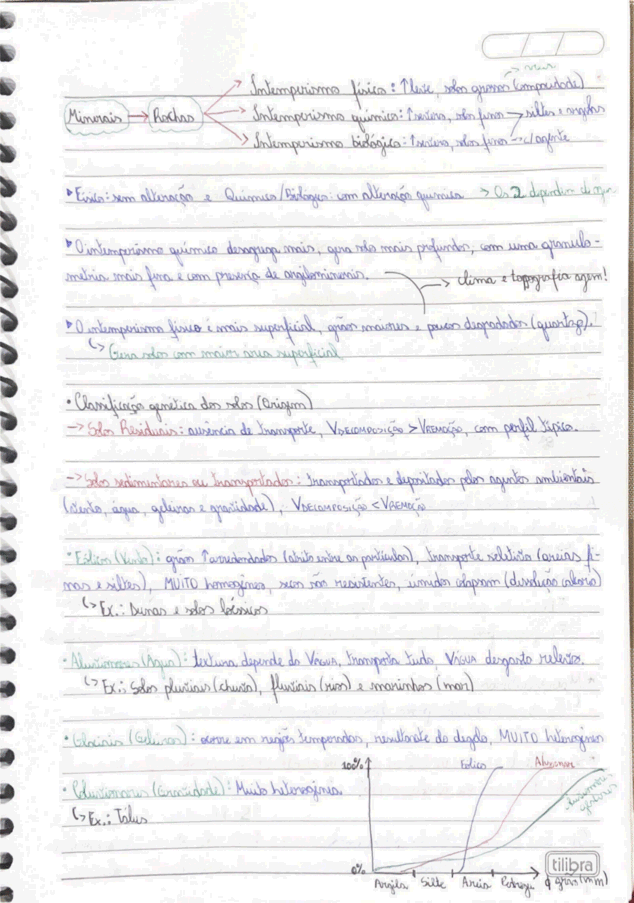 → maior
Intemperismo físico: ↑ leve, solos grossos (composidade)
Minerais → Rochas → Intemperismo químico: ↑ severo, solos finos → siltes e argilas
Intemperismo biológico: ↑ severo, solos finos → c/ agente
▸ Físico: sem alteração e Químico/Biológico: com alteração química → Os 2 dependem de
▸ O intemperismo químico desagrega mais, gera solos mais profundos, com uma granulo-
metria mais fina e com presença de argilominerais.
→ clima e topografia agem!
▸ O intemperismo físico é mais superficial, grãos maiores e poucos degradados (quartzo).
↳ Gera solos com maior área superficial
• Classificação genética dos solos (Origem)
→ Solos Residuais: ausência de transporte, VDECOMPOSIÇÃO > VREMOÇÃO, com perfil típico.
→ Solos sedimentares ou transportados: transportados e depositados pelos agentes ambientais
(vento, água, geleiras e gravidade), VDECOMPOSIÇÃO < VREMOÇÃO
• Eólicos (Vento): grãos ↑ arredondados (atrito entre as partículas), transporte seletivo (areias fi-
nas e siltes), MUITO homogêneo, secos são resistentes, úmidos colapsam (dissolução calcário)
↳ Ex.: Dunas e solos loéssicos
• Aluvionares (Água): textura depende da VÁGUA, transporta tudo, VÁGUA desgasta relevos.
↳ Ex.: Solos pluviais (chuva), fluviais (rios) e marinhos (mar)
• Glaciais (Geleiras): ocorre em regiões temperadas, resultante do degelo, MUITO heterogêneo
• Coluvionares (Gravidade): Muito heterogênea.
↳ Ex.: Tálus
100%
Eólico
Aluvionar
0%
Argila Silte Areia Pedregu. φ grão (mm)
tilibra